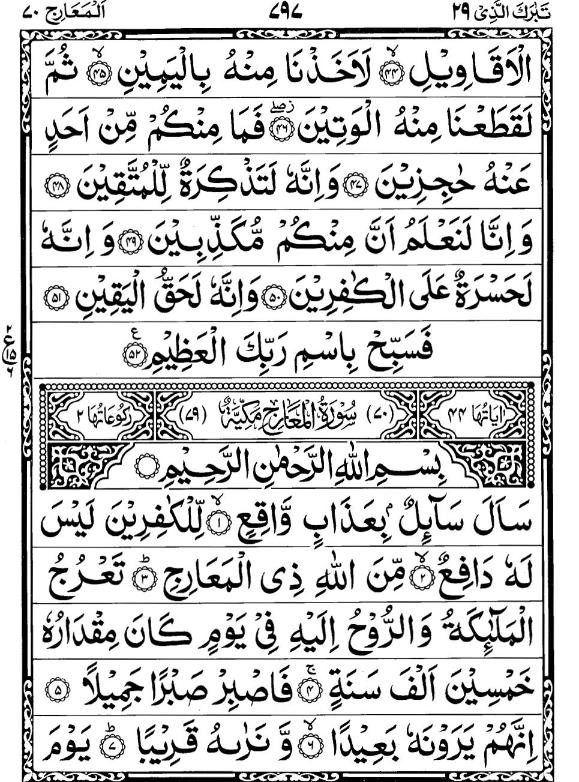 تَبٰرَكَ الَّذِیْ ٢٩ ٧٩٧ اَلْمَعَارِج ٧٠
الْاَقَاوِیْلِ ﴿٤٤﴾ۙ لَاَخَذْنَا مِنْهُ بِالْیَمِیْنِ ﴿٤٥﴾ۙ ثُمَّ
لَقَطَعْنَا مِنْهُ الْوَتِیْنَ ﴿٤٦﴾ۖز فَمَا مِنْكُمْ مِّنْ اَحَدٍ
عَنْهُ حٰجِزِیْنَ ﴿٤٧﴾ وَاِنَّهٗ لَتَذْكِرَةٌ لِّلْمُتَّقِیْنَ ﴿٤٨﴾
وَاِنَّا لَنَعْلَمُ اَنَّ مِنْكُمْ مُّكَذِّبِیْنَ ﴿٤٩﴾ وَاِنَّهٗ
لَحَسْرَةٌ عَلَی الْكٰفِرِیْنَ ﴿٥٠﴾ وَاِنَّهٗ لَحَقُّ الْیَقِیْنِ ﴿٥١﴾
فَسَبِّحْ بِاسْمِ رَبِّكَ الْعَظِیْمِ ﴿٥٢﴾ ع
٢ ع ١٥ ٦
اٰیَاتُهَا ٤٤ (٧٠) سُوْرَةُ الْمَعَارِجِ مَكِّیَّةٌ (٧٩) رُكُوْعَاتُهَا ٢
بِسْمِ اللهِ الرَّحْمٰنِ الرَّحِیْمِ
سَاَلَ سَآىِٕلٌۢ بِعَذَابٍ وَّاقِعٍ ﴿١﴾ۙ لِّلْكٰفِرِیْنَ لَیْسَ
لَهٗ دَافِعٌ ﴿٢﴾ۙ مِّنَ اللهِ ذِی الْمَعَارِجِ ﴿٣﴾ؕ تَعْرُجُ
الْمَلٰٓىِٕكَةُ وَالرُّوْحُ اِلَیْهِ فِیْ یَوْمٍ كَانَ مِقْدَارُهٗ
خَمْسِیْنَ اَلْفَ سَنَةٍ ﴿٤﴾ۚ فَاصْبِرْ صَبْرًا جَمِیْلًا ﴿٥﴾
اِنَّهُمْ یَرَوْنَهٗ بَعِیْدًا ﴿٦﴾ۙ وَّنَرٰىهُ قَرِیْبًا ﴿٧﴾ؕ یَوْمَ